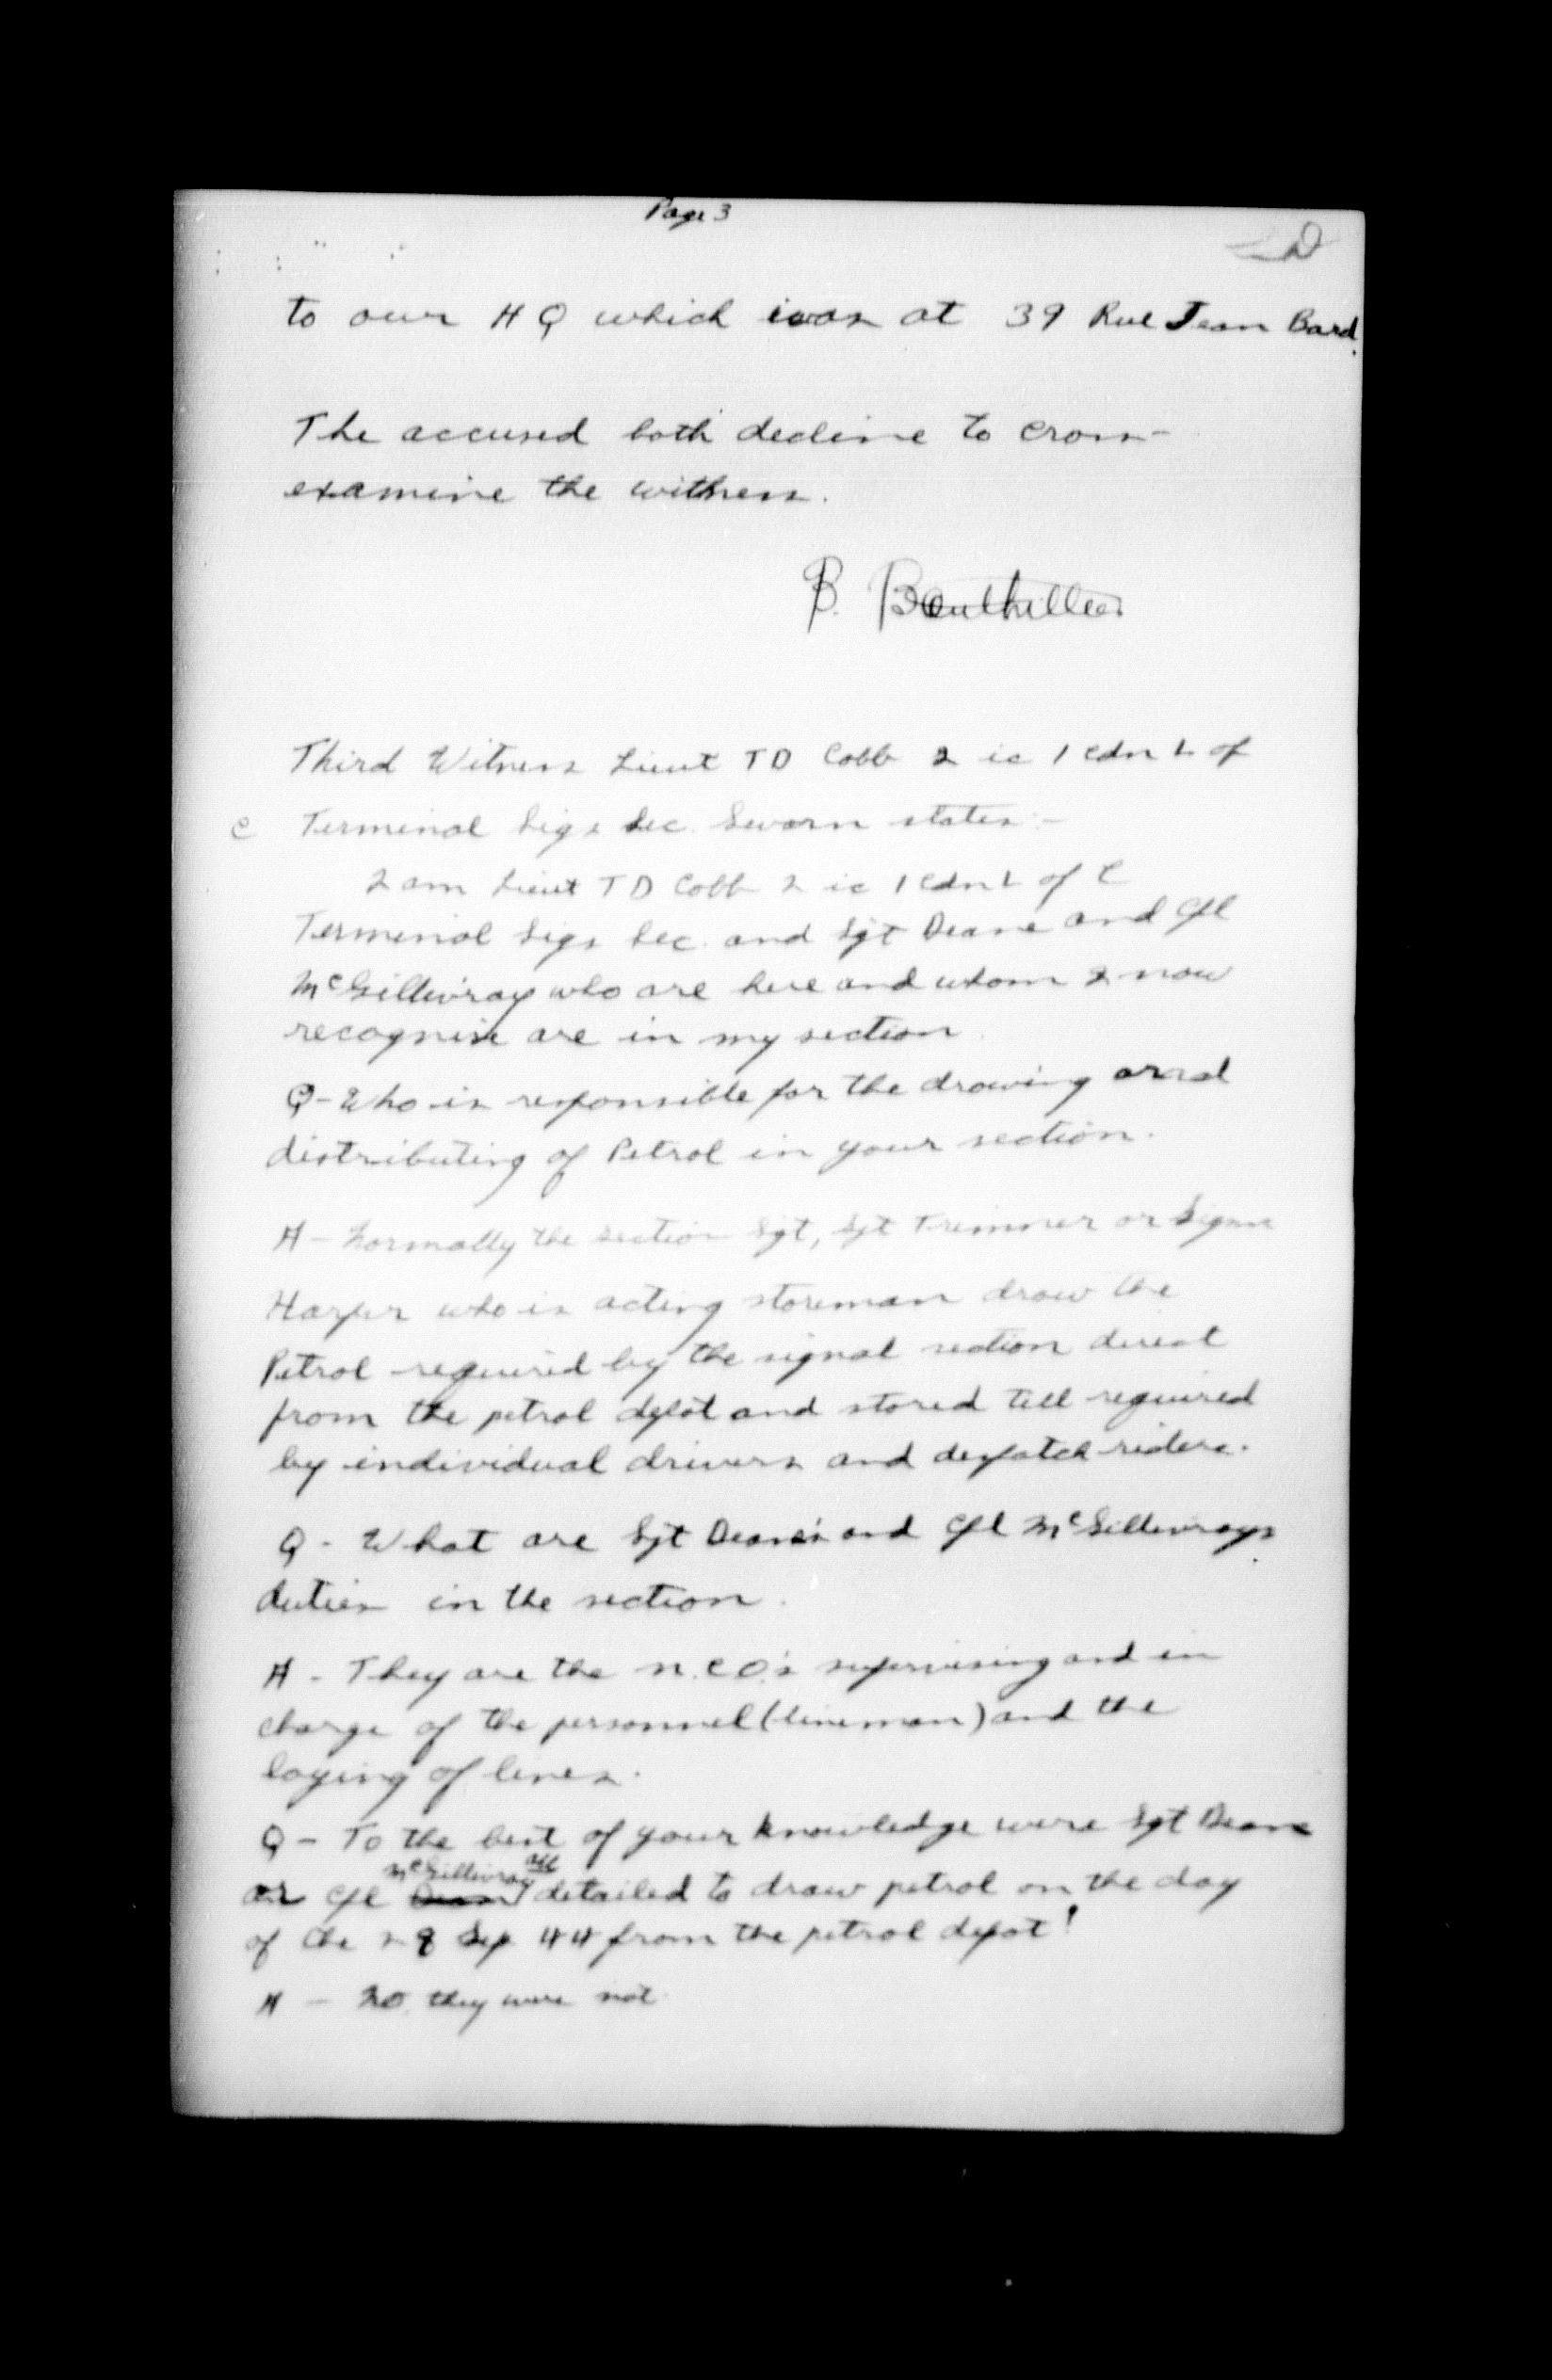 Page 3
D
to our H Q which was at 39 Rue Jean Bard.
The accused both decline to cross-
examine the witness.
B. Bouthillier
Third Witness Lieut T D Cobb 2 ic 1 Cdn L of
C Terminal Sigs Sec. Sworn states:-
I am Lieut T D Cobb 2 ic 1 Cdn L of C
Terminal Sigs Sec. and Sgt Deane and Cpl
McGillivray who are here and whom I now
recognise are in my section.
Q - Who is responsible for the drawing and
distributing of Petrol in your section.
A - Normally the section Sgt, Sgt Trimmer or Sigmn
Harper who is acting storeman draw the
Petrol required by the signal section direct
from the petrol depot and stored till required
by individual drivers and despatch riders.
Q - What are Sgt Deane's and Cpl McGillivrays
duties in the section.
A - They are the N.C.O.'s supervising and in
charge of the personnel (lineman) and the
laying of lines.
Q - To the best of your knowledge were Sgt Deane
McGillivray
or Cpl Dean detailed to draw petrol on the day
of the 28 Sep 44 from the petrol depot?
A - No, they were not